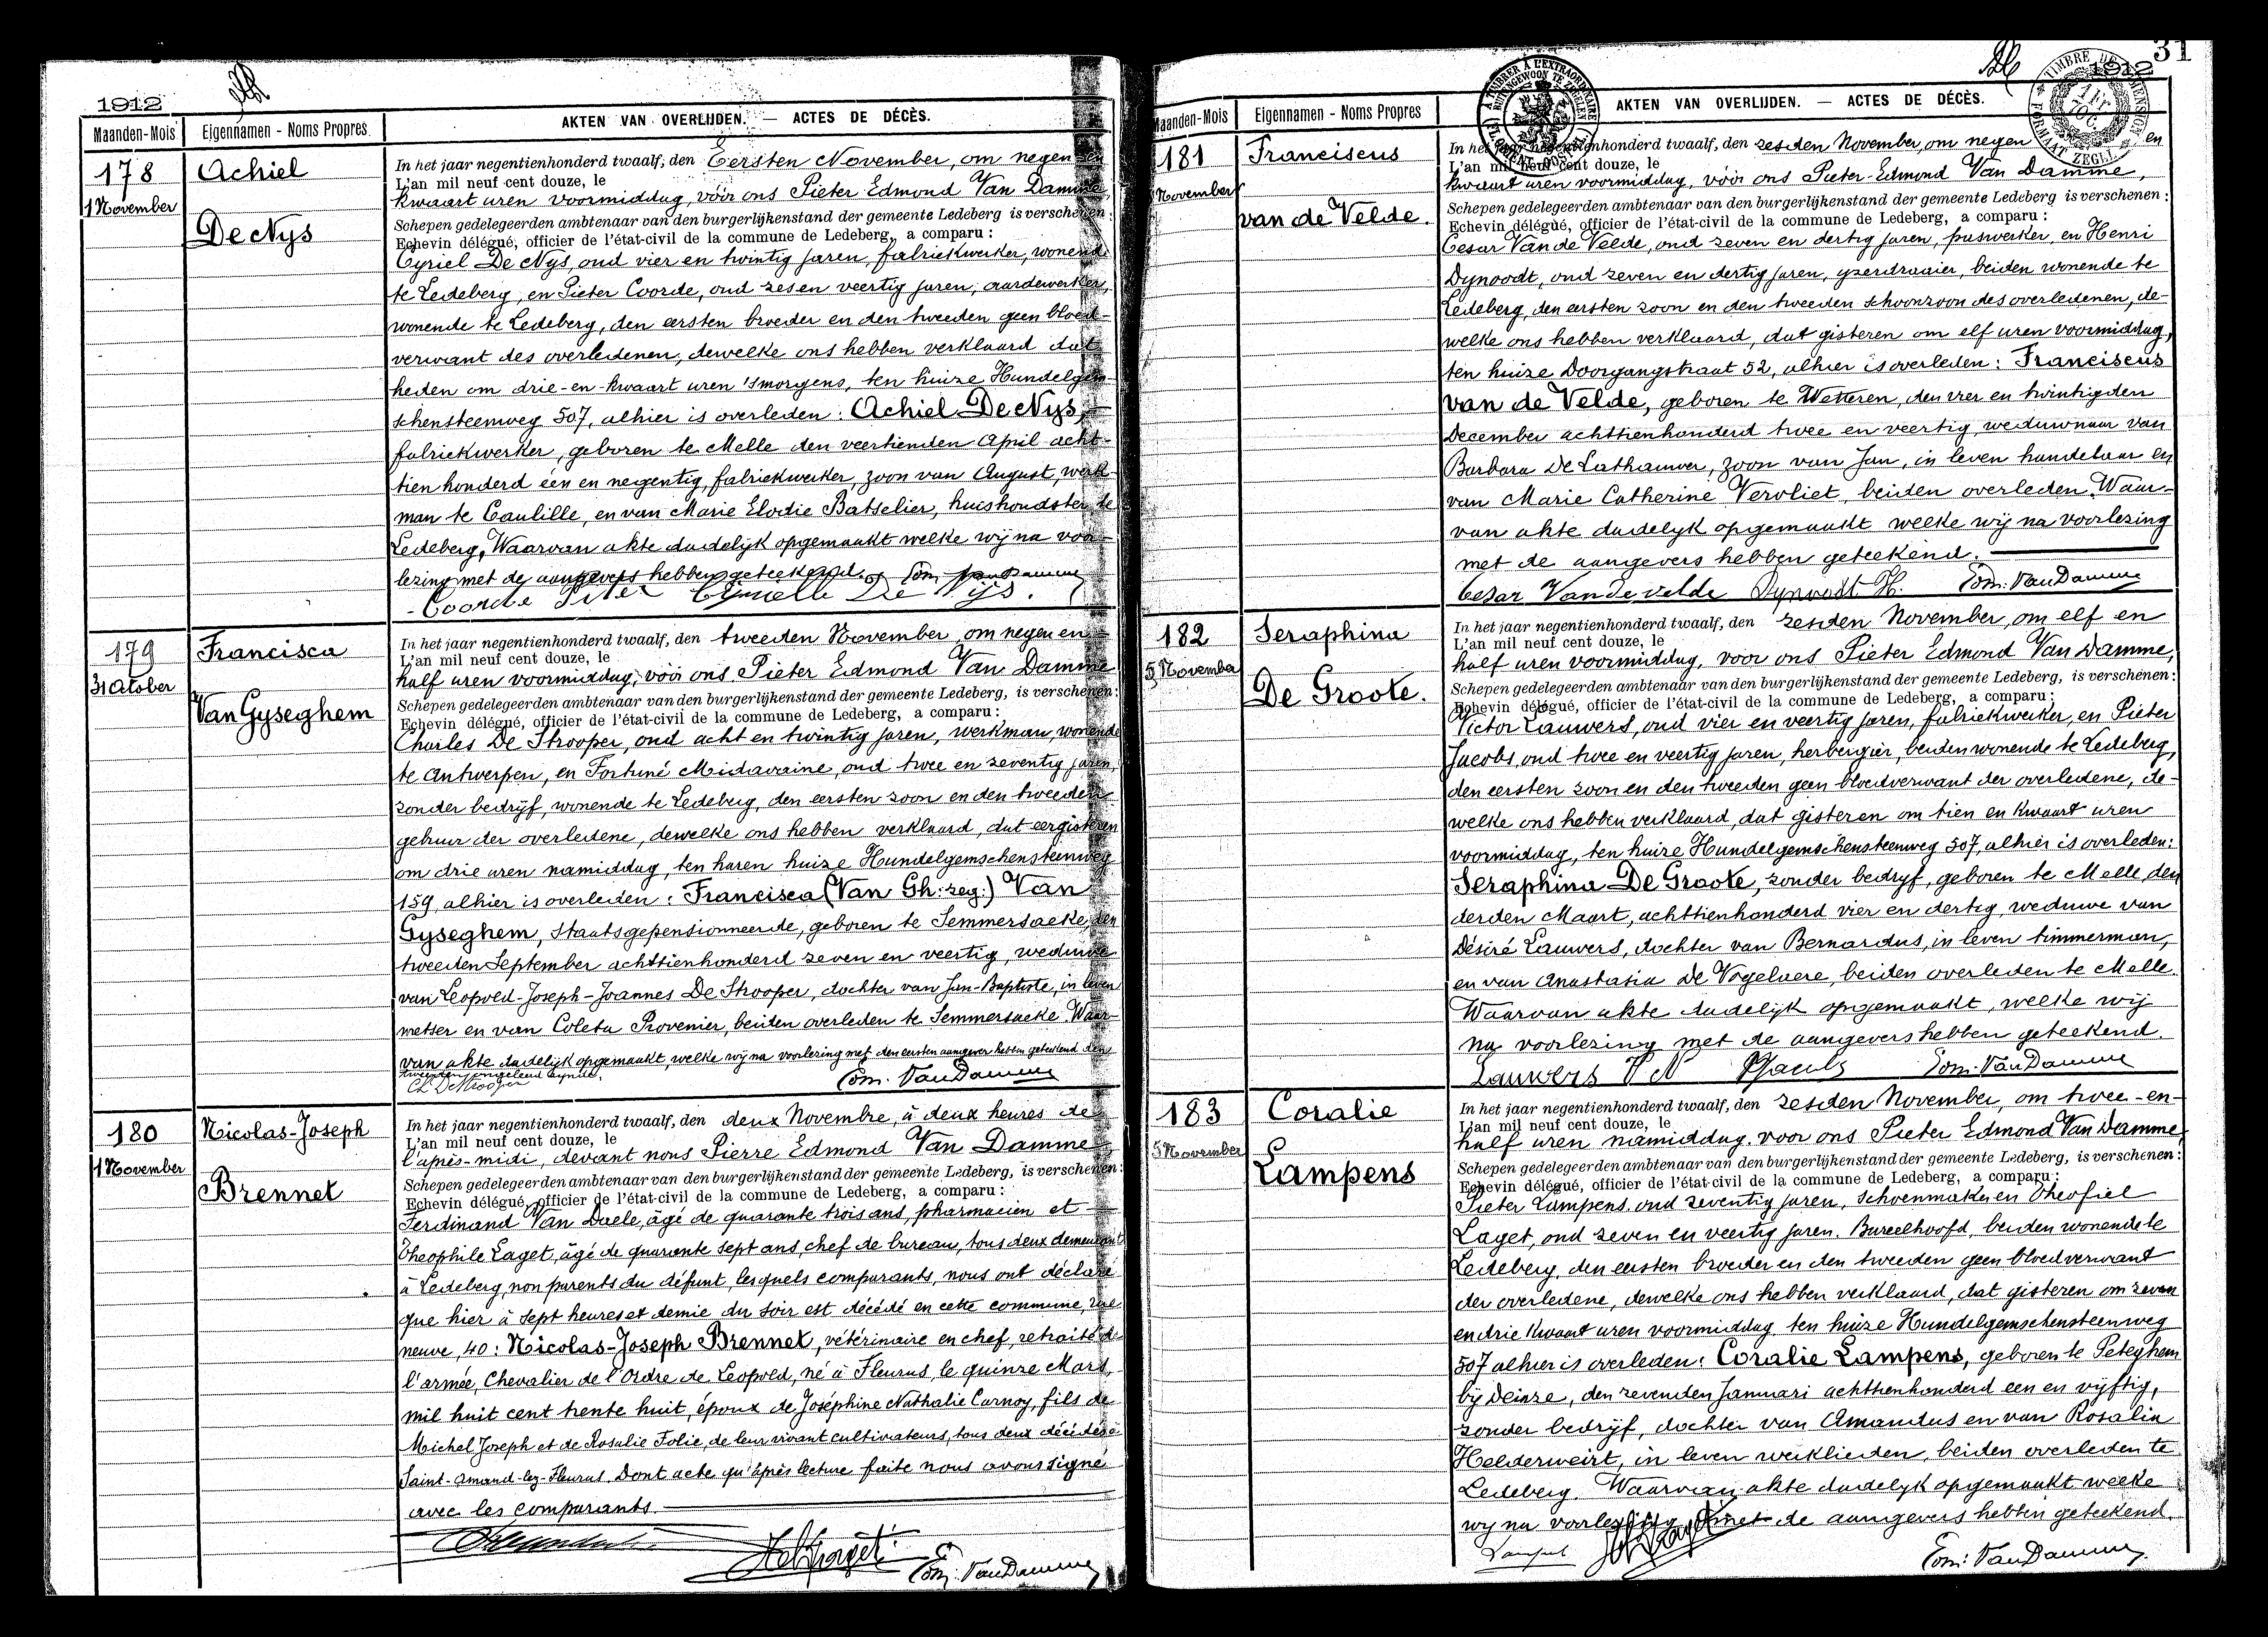 1912
Maanden-Mois Eigennamen - Noms Propres AKTEN VAN OVERLIJDEN. — ACTES DE DÉCÈS.
178
1 November
Achiel
De Nys
In het jaar negentienhonderd twaalf, den Eersten November, om negen en
L'an mil neuf cent douze, le
kwaart uren voormiddag, vóór ons Pieter Edmond Van Damme,
Schepen gedelegeerden ambtenaar van den burgerlijkenstand der gemeente Ledeberg is verschenen:
Echevin délégué, officier de l'état-civil de la commune de Ledeberg, a comparu :
Cyriel De Nys, oud vier en twintig jaren, fabriekwerker, wonende
te Ledeberg, en Pieter Coorde, oud zes en veertig jaren, aardewerker,
wonende te Ledeberg, den eersten broeder en den tweeden geen bloed-
verwant des overledenen, dewelke ons hebben verklaard dat
heden om drie-en-kwaart uren 'smorgens, ten huize Hundelgem-
schensteenweg 507, alhier is overleden: Achiel De Nys,
fabriekwerker, geboren te Melle den veertienden April acht-
tien honderd één en negentig, fabriekwerker, zoon van August, werk-
man te Caulille, en van Marie Elodie Batselier, huishoudster te
Ledeberg. Waarvan akte dadelijk opgemaakt welke wij na voor-
lezing met de aangevers hebben geteekend. Edm. Van Damme
Coorde Piter Cyrielle De Nijs.
179
31 Otober
Francisca
Van Gyseghem
In het jaar negentienhonderd twaalf, den tweeden November, om negen en
L'an mil neuf cent douze, le
half uren voormiddag, vóór ons Pieter Edmond Van Damme
Schepen gedelegeerden ambtenaar van den burgerlijkenstand der gemeente Ledeberg, is verschenen:
Echevin délégué, officier de l'état-civil de la commune de Ledeberg, a comparu :
Charles De Strooper, oud acht en twintig jaren, werkman, wonende
te Antwerpen, en Fortuné Midavaine, oud twee en zeventig jaren,
zonder bedrijf, wonende te Ledeberg, den eersten zoon en den tweeden
gebuur der overledene, dewelke ons hebben verklaard, dat eergisteren
om drie uren namiddag, ten haren huize Hundelgemschensteenweg
159, alhier is overleden: Francisca (Van Gh: zeg:) Van
Gyseghem, staatsgepensionneerde, geboren te Semmersaeke, den
tweeden September achttienhonderd zeven en veertig, weduwe
van Leopold-Joseph-Joannes De Strooper, dochter van Jan-Baptiste, in leven
metser en van Coleta Provenier, beiden overleden te Semmersaeke. Waar-
van akte dadelijk opgemaakt, welke wij na voorlezing met den eersten aangever hebben geteekend den
tweeden ongeleerd zynde.
Ch De Strooper Edm. Van Damme
180
1 November
Nicolas-Joseph
Brennet
In het jaar negentienhonderd twaalf, den deux Novembre, à deux heures de
L'an mil neuf cent douze, le
l'après-midi, devant nous Pierre Edmond Van Damme
Schepen gedelegeerden ambtenaar van den burgerlijkenstand der gemeente Ledeberg, is verschenen:
Echevin délégué, officier de l'état-civil de la commune de Ledeberg, a comparu :
Ferdinand Van Daele, âgé de quarante trois ans, pharmacien et
Théophile Laget, âgé de quarante sept ans, chef de bureau, tous deux demeurant
à Ledeberg, non parents du défunt, lesquels comparants, nous ont déclaré
que hier à sept heures et demie du soir est décédé en cette commune, rue
neuve, 40: Nicolas-Joseph Brennet, vétérinaire en chef, retraité de
l'armée, Chevalier de l'Ordre de Léopold, né à Fleurus, le quinze Mars
mil huit cent trente huit, époux de Joséphine Nathalie Carnoy, fils de
Michel Joseph et de Rosalie Folie, de leur vivant cultivateurs, tous deux décédés à
Saint-Amand-lez-Fleurus. Dont acte qu'après lecture faite nous avons signé
avec les comparants.
Edm: Van Damme
31
1912
Maanden-Mois Eigennamen - Noms Propres AKTEN VAN OVERLIJDEN. — ACTES DE DÉCÈS.
181
November
Franciscus
van de Velde.
In het jaar negentienhonderd twaalf, den zesden November, om negen en
L'an mil neuf cent douze, le
kwaart uren voormiddag, vóór ons Pieter-Edmond Van Damme,
Schepen gedelegeerden ambtenaar van den burgerlijkenstand der gemeente Ledeberg is verschenen :
Echevin délégué, officier de l'état-civil de la commune de Ledeberg, a comparu :
Cesar Van de Velde, oud zeven en dertig jaren, puswerker, en Henri
Dynoodt, oud zeven en dertig jaren, yzerdraaier, beiden wonende te
Ledeberg, den eersten zoon en den tweeden schoonzoon des overledenen, de-
welke ons hebben verklaard, dat gisteren om elf uren voormiddag,
ten huize Doorgangstraat 52, alhier is overleden: Franciscus
van de Velde, geboren te Wetteren, den vier en twintigsten
December achttienhonderd twee en veertig, weduwnaar van
Barbara De Lathauwer, zoon van Jan, in leven handelaar en
van Marie Catherine Vervliet, beiden overleden. Waar-
van akte dadelyk opgemaakt welke wij na voorlezing
met de aangevers hebben geteekend.
Cesar Van de velde Dynoodt H. Edm: Van Damme
182
5 November
Seraphina
De Groote.
In het jaar negentienhonderd twaalf, den zesden November, om elf en
L'an mil neuf cent douze, le
half uren voormiddag, voor ons Pieter Edmond Van Damme,
Schepen gedelegeerden ambtenaar van den burgerlijkenstand der gemeente Ledeberg, is verschenen:
Echevin délégué, officier de l'état-civil de la commune de Ledeberg, a comparu :
Victor Lauwers, oud vier en veertig jaren, fabriekwerker, en Pieter
Jacobs, oud twee en veertig jaren, herbergier, beiden wonende te Ledeberg,
den eersten zoon en den tweeden geen bloedverwant der overledene, de-
welke ons hebben verklaard, dat gisteren om tien en kwaart uren
voormiddag, ten huize Hundelgemschensteenweg 507, alhier is overleden:
Seraphina De Groote, zonder bedryf, geboren te Melle, den
derden Maart, achttienhonderd vier en dertig, weduwe van
Désiré Lauwers, dochter van Bernardus, in leven timmerman,
en van Anastasia De Vogelaere, beiden overleden te Melle.
Waarvan akte dadelijk opgemaakt, welke wij
na voorlezing met de aangevers hebben geteekend.
Lauwers PJacobs Edm: Van Damme
183
5 November
Coralie
Lampens
In het jaar negentienhonderd twaalf, den zesden November, om twee-en-
L'an mil neuf cent douze, le
half uren namiddag, voor ons Pieter Edmond Van Damme,
Schepen gedelegeerden ambtenaar van den burgerlijkenstand der gemeente Ledeberg, is verschenen :
Echevin délégué, officier de l'état-civil de la commune de Ledeberg, a comparu :
Pieter Lampens, oud zeventig jaren, schoenmaker en Theofiel
Laget, oud zeven en veertig jaren, Bureelhoofd, beiden wonende te
Ledeberg, den eersten broeder en den tweeden geen bloedverwant
der overledene, dewelke ons hebben verklaard, dat gisteren om zeven
en drie kwaart uren voormiddag, ten huize Hundelgemschensteenweg
507 alhier is overleden: Coralie Lampens, geboren te Peteghem
bij Deinze, den zevenden Januari achttienhonderd een en vijftig,
zonder bedrijf, dochter van Amandus en van Rosalia
Helderweirt, in leven werklieden, beiden overleden te
Ledeberg. Waarvan akte dadelyk opgemaakt welke
wy na voorlezing met de aangevers hebben geteekend.
Edm: Van Damme